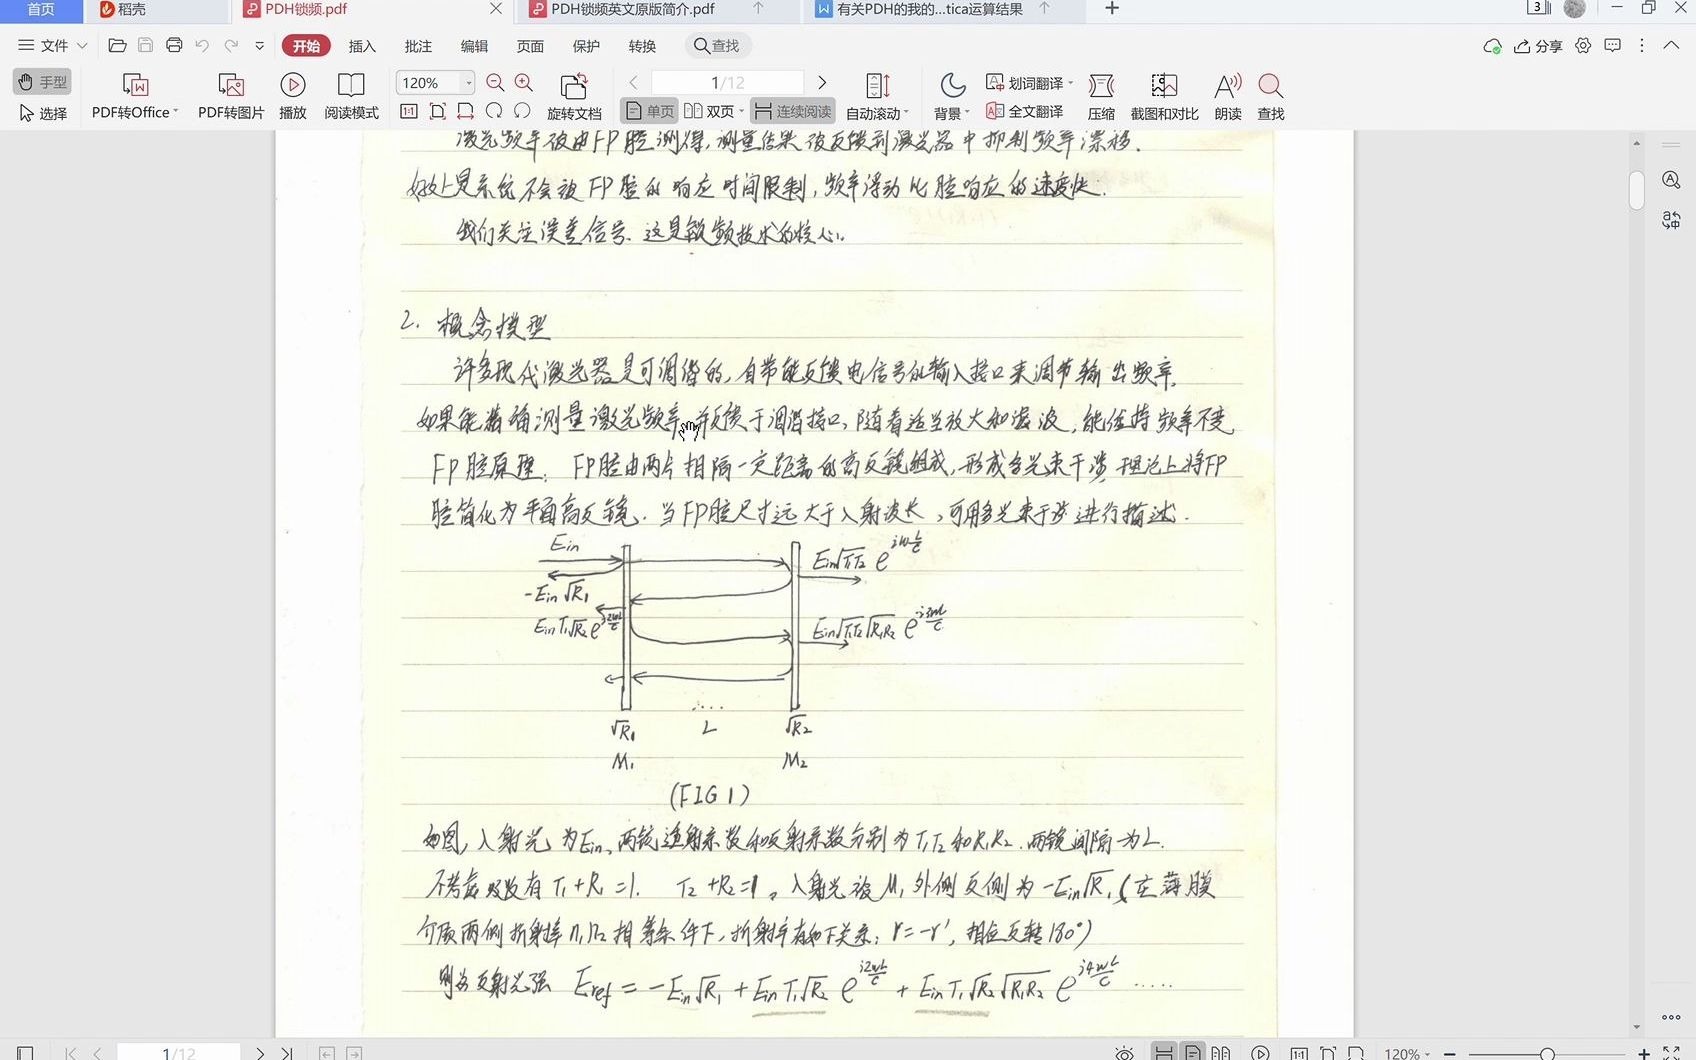 首页 稻壳 PDH锁频.pdf PDH锁频英文原版简介.pdf 有关PDH的我的...tica运算结果 3
文件 开始 插入 批注 编辑 页面 保护 转换 查找 分享
手型 选择 PDF转Office PDF转图片 播放 阅读模式 120% 旋转文档 1/12 单页 双页 连续阅读 自动滚动 背景 划词翻译 全文翻译 压缩 截图和对比 朗读 查找
激光频率被由FP腔测得,测量结果被反馈到激光器中抑制频率漂移.
好处是系统不会被FP腔的响应时间限制,频率浮动比腔响应的速度快.
我们关注误差信号.这是锁频技术的核心.
2. 概念模型
许多现代激光器是可调谐的,自带能反馈电信号的输入接口来调节输出频率.
如果能精确测量激光频率,并反馈于调谐接口,随着适当放大和滤波,能保持频率不变
FP腔原理. FP腔由两片相隔一定距离的高反镜组成,形成多光束干涉,理论上将FP
腔简化为平面高反镜.当FP腔尺寸远大于入射波长,可用多光束干涉进行描述.
Ein
Ein√T1T2 e^{iωL/c}
-Ein√R1
Ein T1√R2 e^{i2ωL/c}
Ein√T1T2√R1R2 e^{i3ωL/c}
....
√R1 L √R2
M1 M2
(FIG 1)
如图,入射光为Ein,两镜透射系数和反射系数分别为T1T2和R1R2.两镜间隔为L.
不考虑吸收有T1+R1=1. T2+R2=1,入射光被M1外侧反侧为-Ein√R1(在薄膜
介质两侧折射率n1n2相等条件下,折射率有如下关系: r=-r',相位反转180°)
则为反射光强 Eref = -Ein√R1 + Ein T1√R2 e^{i2ωL/c} + Ein T1√R2√R1R2 e^{i4ωL/c} .....
1/12 120%